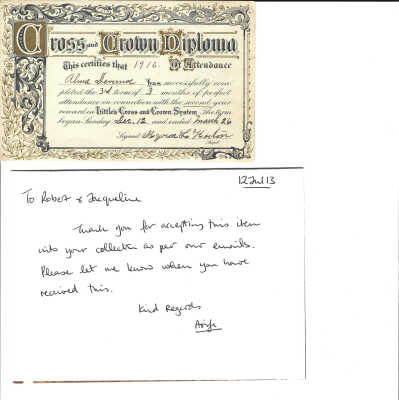 Cross and Crown Diploma
This certifies that 1916. Of Attendance
has successfully com-
pleted the 3rd term of 3 months of perfect
attendance in connection with the second year
reward in Little's Cross and Crown System. The term
began Sunday Dec. 12 and ended March 26
Signed
Supt.
12 Jul 13
To Robert & Jacqueline
Thank you for accepting this item
into your collection as per our emails.
Please let me know when you have
received this.
Kind Regards